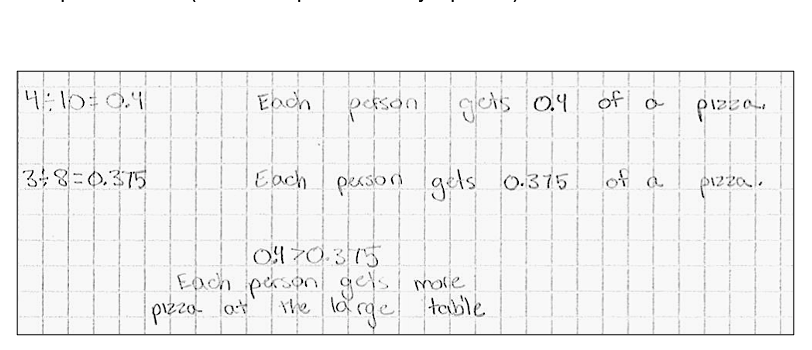 4÷10=0.4 Each person gets 0.4 of a pizza.
3÷8=0.375 Each person gets 0.375 of a pizza.
0.4>0.375
Each person gets more
pizza at the large table